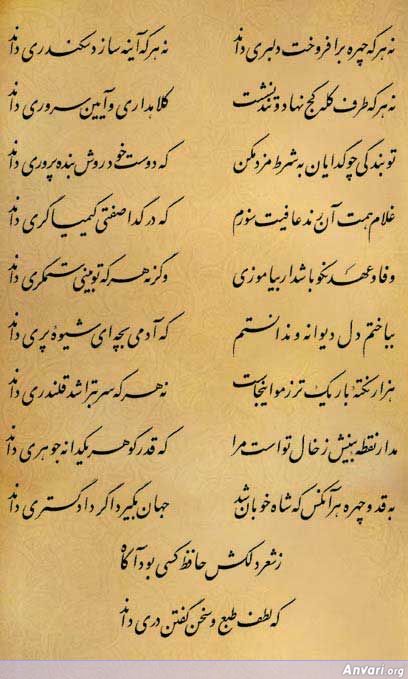 نه هر که چهره برافروخت دلبری داند نه هر که آینه سازد سکندری داند
نه هر که طرف کله کج نهاد و تند نشست کلاهداری و آیین سروری داند
تو بندگی چو گدایان به شرط مزد مکن که دوست خود روش بنده‌پروری داند
غلام همت آن رند عافیت سوزم که در گداصفتی کیمیاگری داند
وفا و عهد نکو باشد ار بیاموزی وگرنه هر که تو بینی ستمگری داند
بباختم دل دیوانه و ندانستم که آدمی بچه‌ای شیوهٔ پری داند
هزار نکتهٔ باریک‌تر ز مو اینجاست نه هر که سر بتراشد قلندری داند
مدار نقطهٔ بینش ز خال تو است مرا که قدر گوهر یکدانه جوهری داند
به قد و چهره هر آنکس که شاه خوبان شد جهان بگیرد اگر دادگستری داند
ز شعر دلکش حافظ کسی بود آگاه
که لطف طبع و سخن گفتن دری داند
Anvari.org